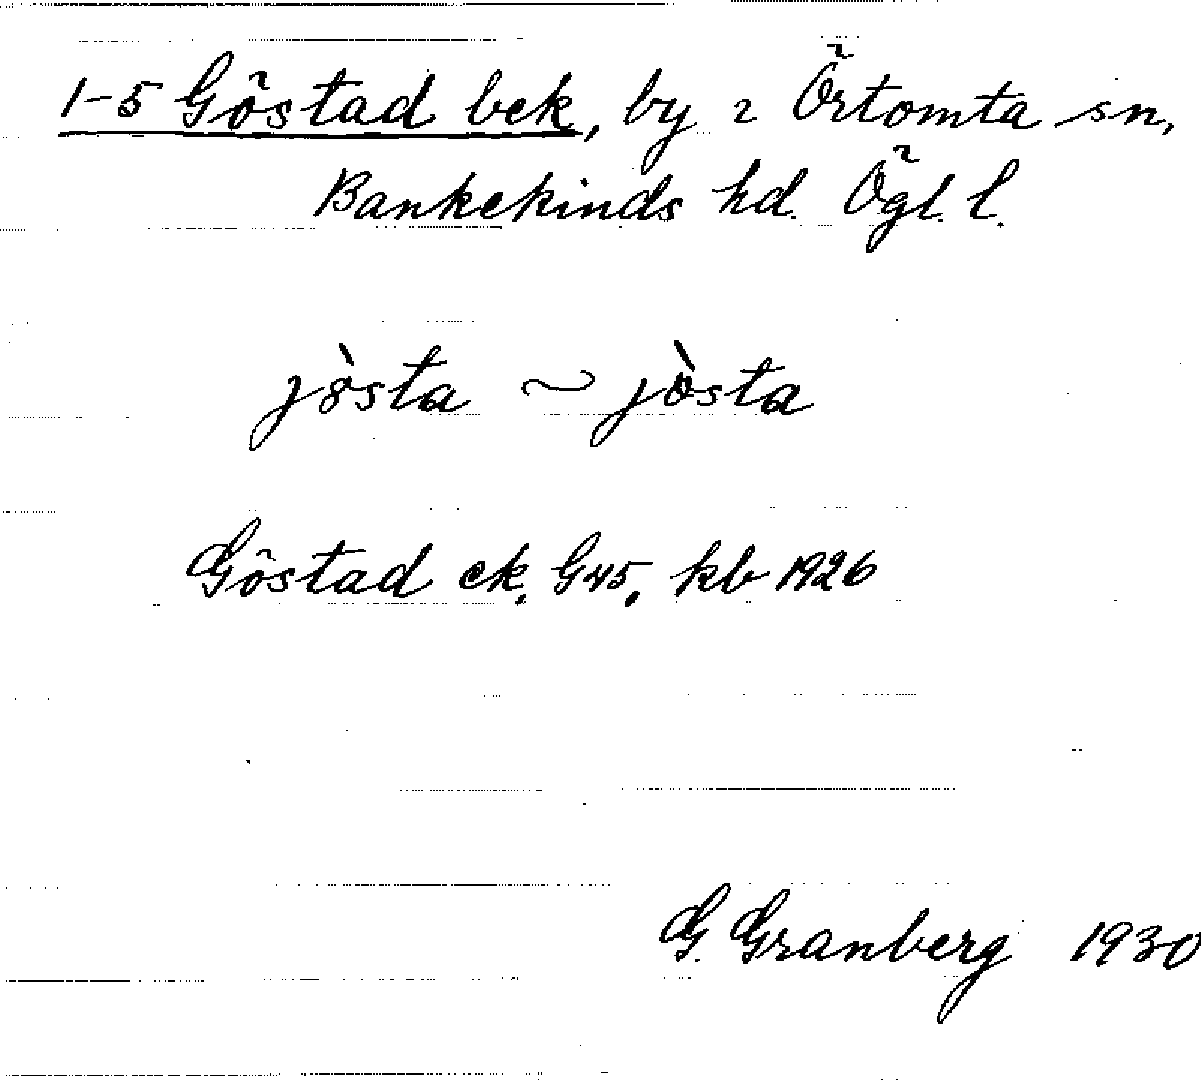 1-5 Göstad bek, by i Örtomta sn,
Bankekinds hd. Ögl. l.
jösta ~ jòsta
Göstad ek. G45, kb 1926
G. Granberg 1930